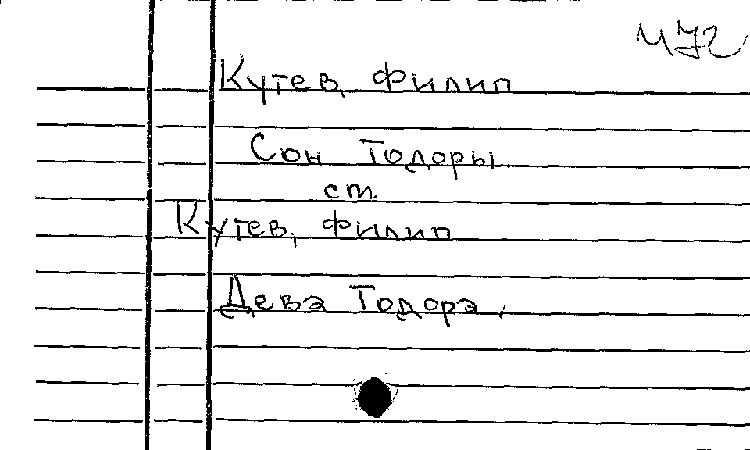 472
Кутев, Филип
Сон Тодоры
ст.
Кутев, Филип
Дева Тодора.